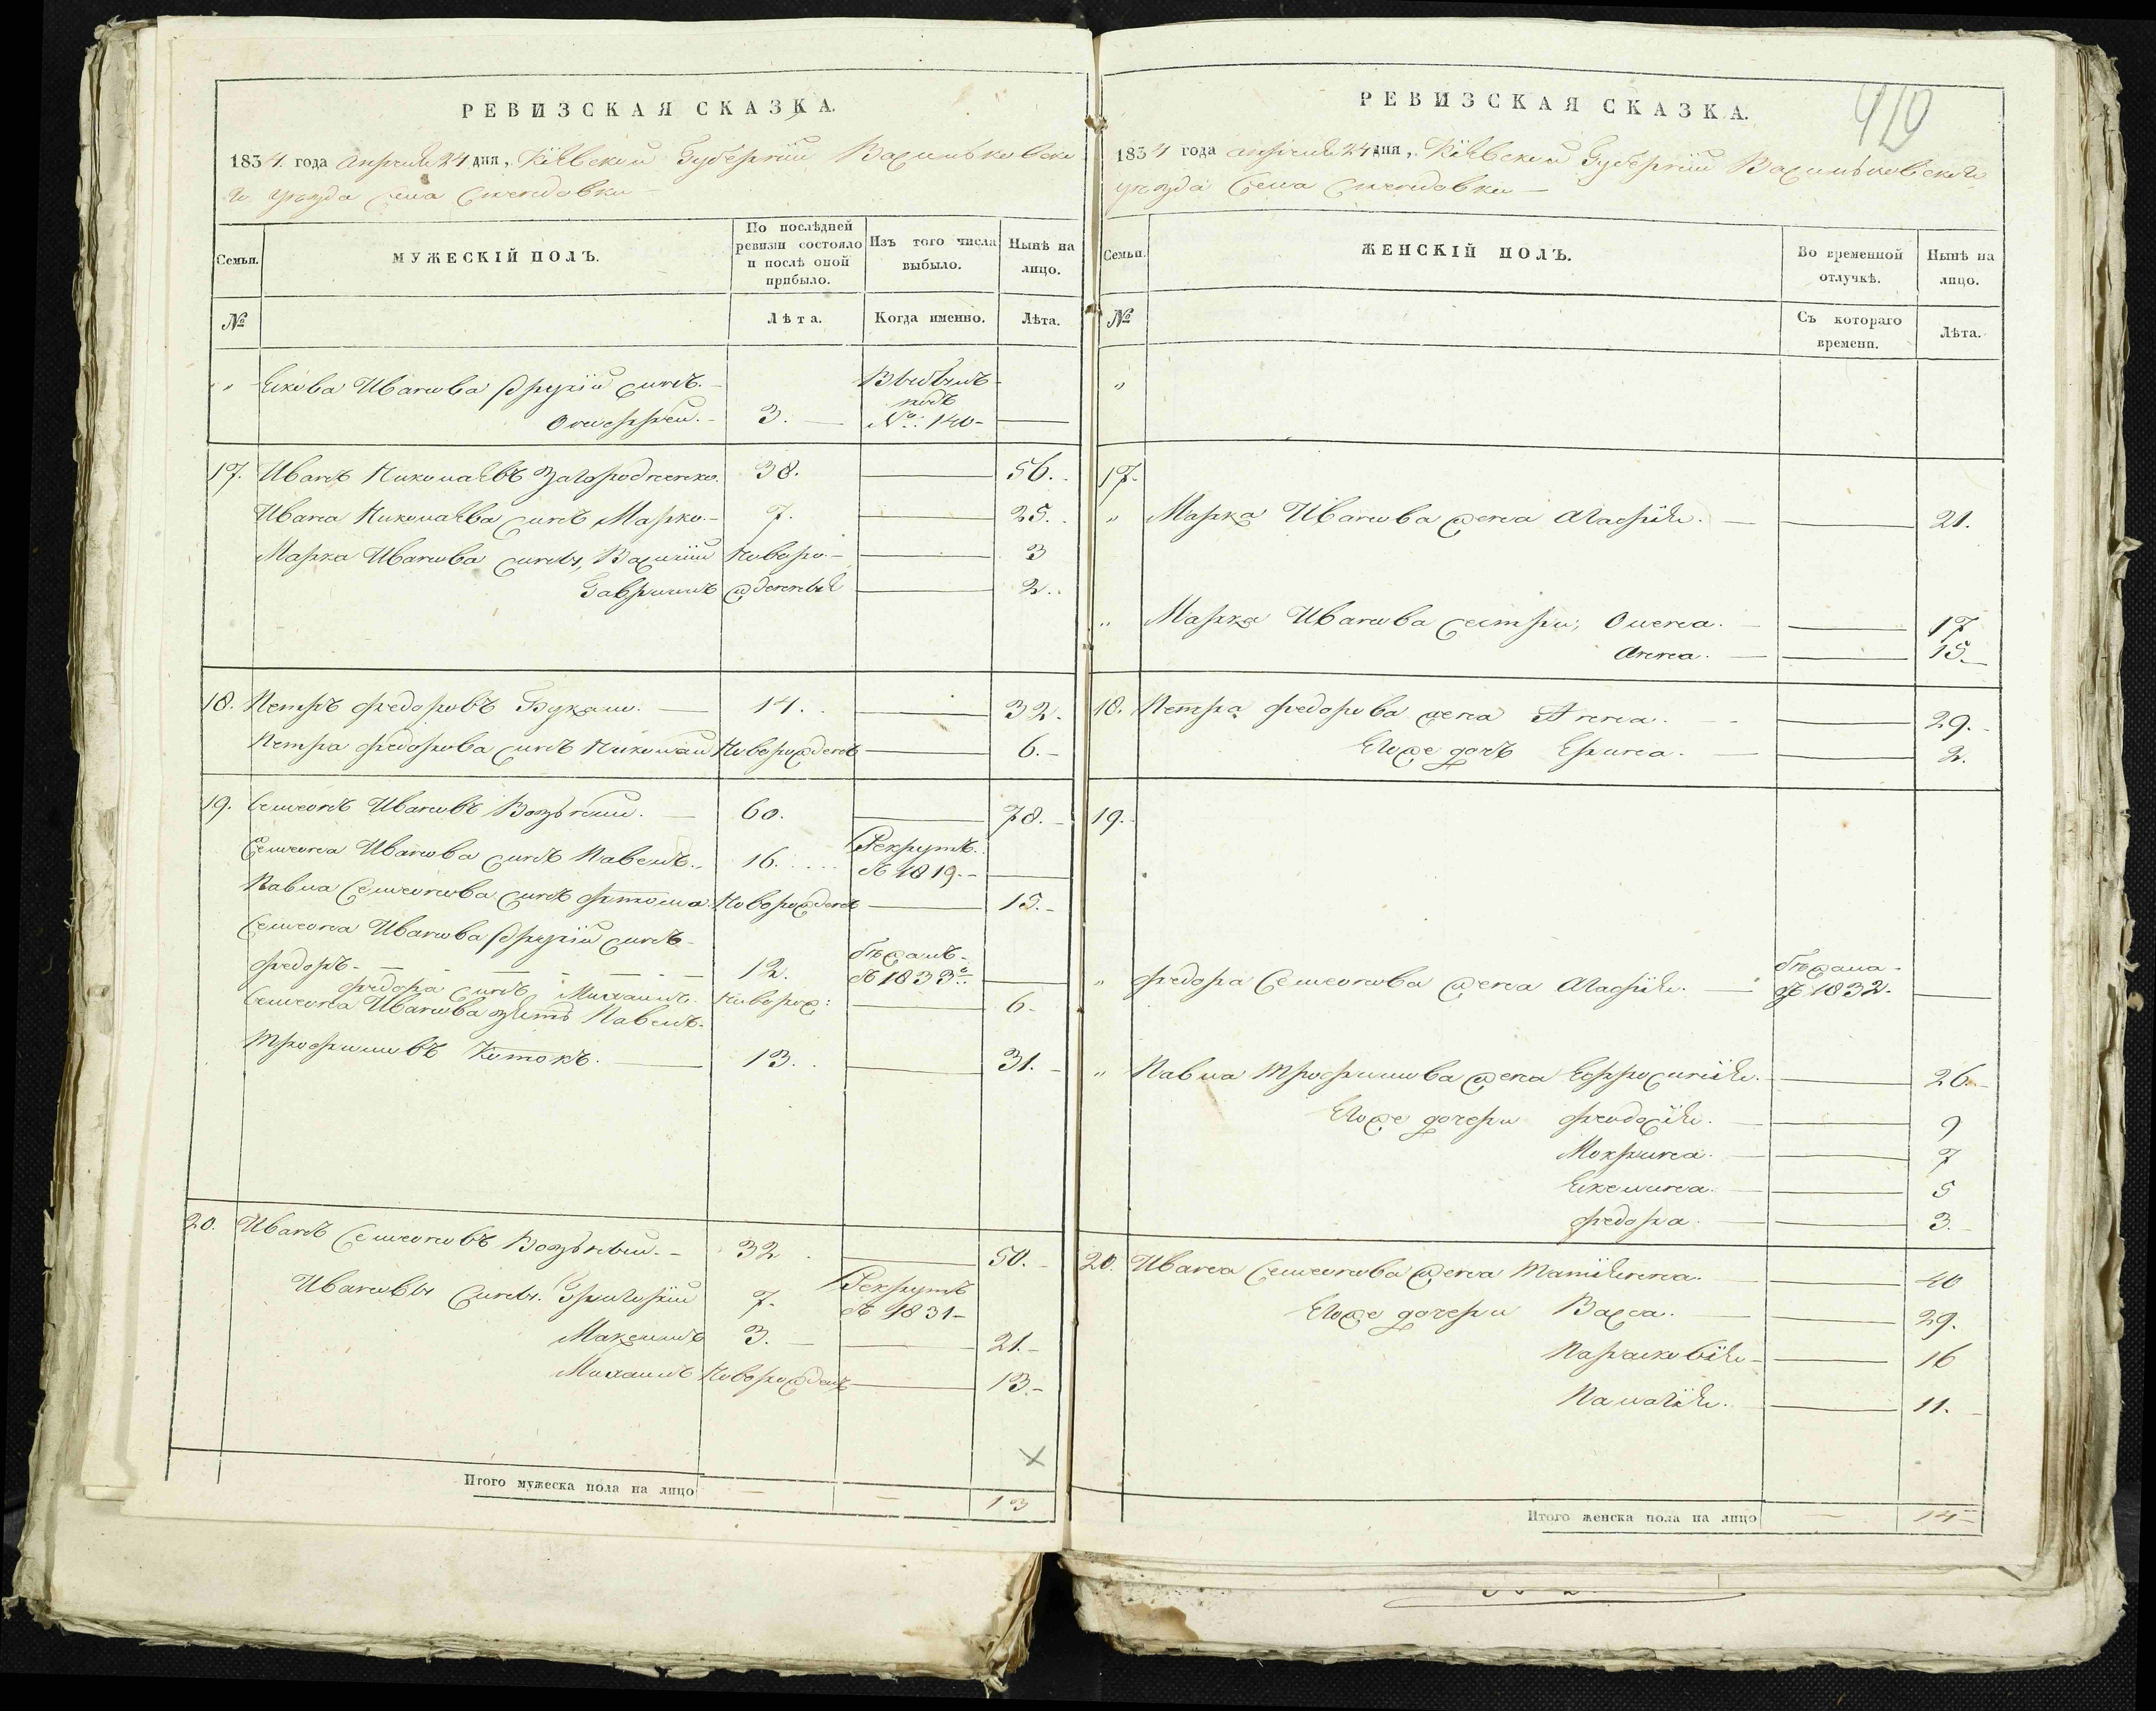 РЕВИЗСКАЯ СКАЗКА.
1834 года Апреля 24 дня, Кіевской Губерніи Васильковска
го уѣзда Села
Семьи.
МУЖЕСКІЙ ПОЛЪ.
По послѣдней ревизіи состояло и послѣ оной прибыло.
Изъ того числа выбыло.
Нынѣ на лицо.
№
Лѣта.
Когда именно.
Лѣта.
" Якова Иванова другій сынъ
Онуфрей. 3. подъ №: 140
17. Иванъ Николаевъ Загородненко. 38. 56.
Ивана Николаева сынъ Марко. 7. 25.
Марка Иванова сыны, Василій Новоро- 3
Гаврилъ жденныя 2.
18. Петръ Федоровъ 14. 32.
Петра Федорова сынъ Николай Новорожденъ 6.
19. Семенъ Ивановъ 60. 78.
Семена Иванова сынъ Павелъ. 16. Рекрутъ въ 1819.
Павла Семенова сынъ Новорожденъ 15.
Семена Иванова другій сынъ
Федоръ. 12. бежалъ въ 1833.
Федора сынъ Михаилъ. Новорож: 6.
Семена Иванова зять Павелъ
Трофимовъ Котокъ. 13. 31.
20. Иванъ Семеновъ 32. 50.
Ивановы сыны. Григорій 7. Рекрутъ въ 1831
Максимъ 3. 21.
Михаилъ Новорожденъ 13.
Итого мужеска пола на лицо 13
РЕВИЗСКАЯ СКАЗКА.
1834 года Апреля 24 дня, Кіевской Губерніи Васильковскаго
уѣзда Села
Семьи.
ЖЕНСКІЙ ПОЛЪ.
Во временной отлучкѣ.
Нынѣ на лицо.
№
Съ котораго времени.
Лѣта.
"
17.
" Марка Иванова жена Агафія. 21.
" Марка Иванова сестры, Олена. 17
Анна. 15.
18. Петра Федорова жена Анна. 29.
Егоже дочь Ирина. 2.
19.
" Федора Семенова жена Агафія. бежала въ 1832.
" Павла Трофимова жена Ефросинія. 26.
Егоже дочери Феодосія. 9
Мокрина. 7
5
Федора. 3.
20. Ивана Семенова жена Татіянна. 40
Егоже дочери Васса. 29.
Парасковія 16
Палагія. 11.
Итого женска пола на лицо 14